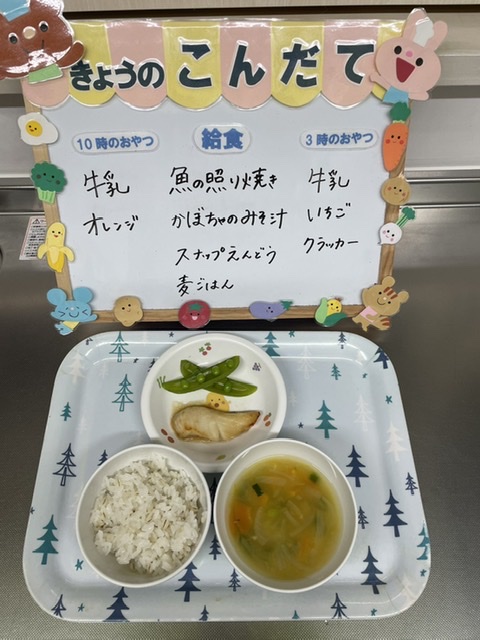 きょうの こんだて
10時のおやつ
牛乳
オレンジ
給食
魚の照り焼き
かぼちゃのみそ汁
スナップえんどう
麦ごはん
3時のおやつ
牛乳
いちご
クラッカー